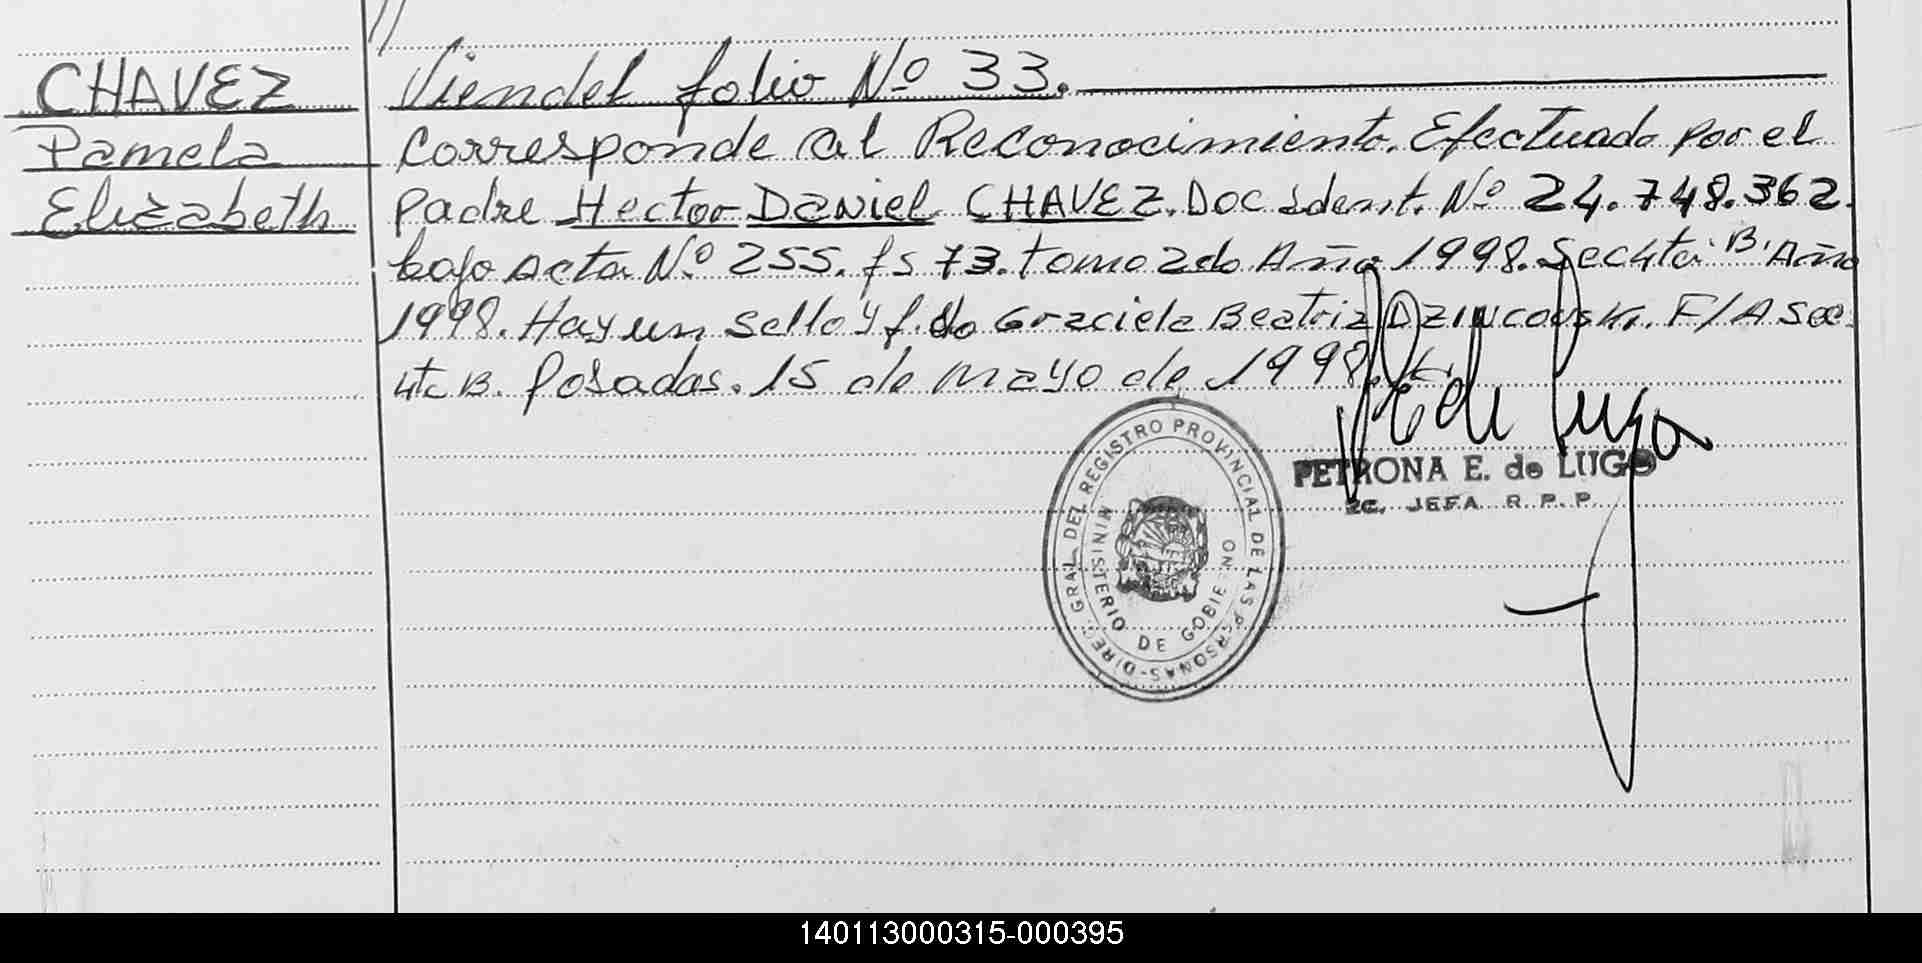 CHAVEZ
Pamela
Elizabeth
Viendel folio Nº 33.
Corresponde al Reconocimiento. Efectuado por el
padre Hector Daniel CHAVEZ. Doc ident. Nº 24.748.362.
bajo acta Nº 255. fs 73. tomo 2do Año 1998. Sec 4ta B. Año
1998. Hay un sello y f.do Graciela Beatriz DZINCOVSKI. F/A Sec
4ta B. Posadas. 15 de mayo de 1998.
PETRONA E. de LUGO
2C. JEFA R. P. P.
DIREC. GRAL DEL REGISTRO PROVINCIAL DE LAS PERSONAS-
MINISTERIO DE GOBIERNO
140113000315-000395